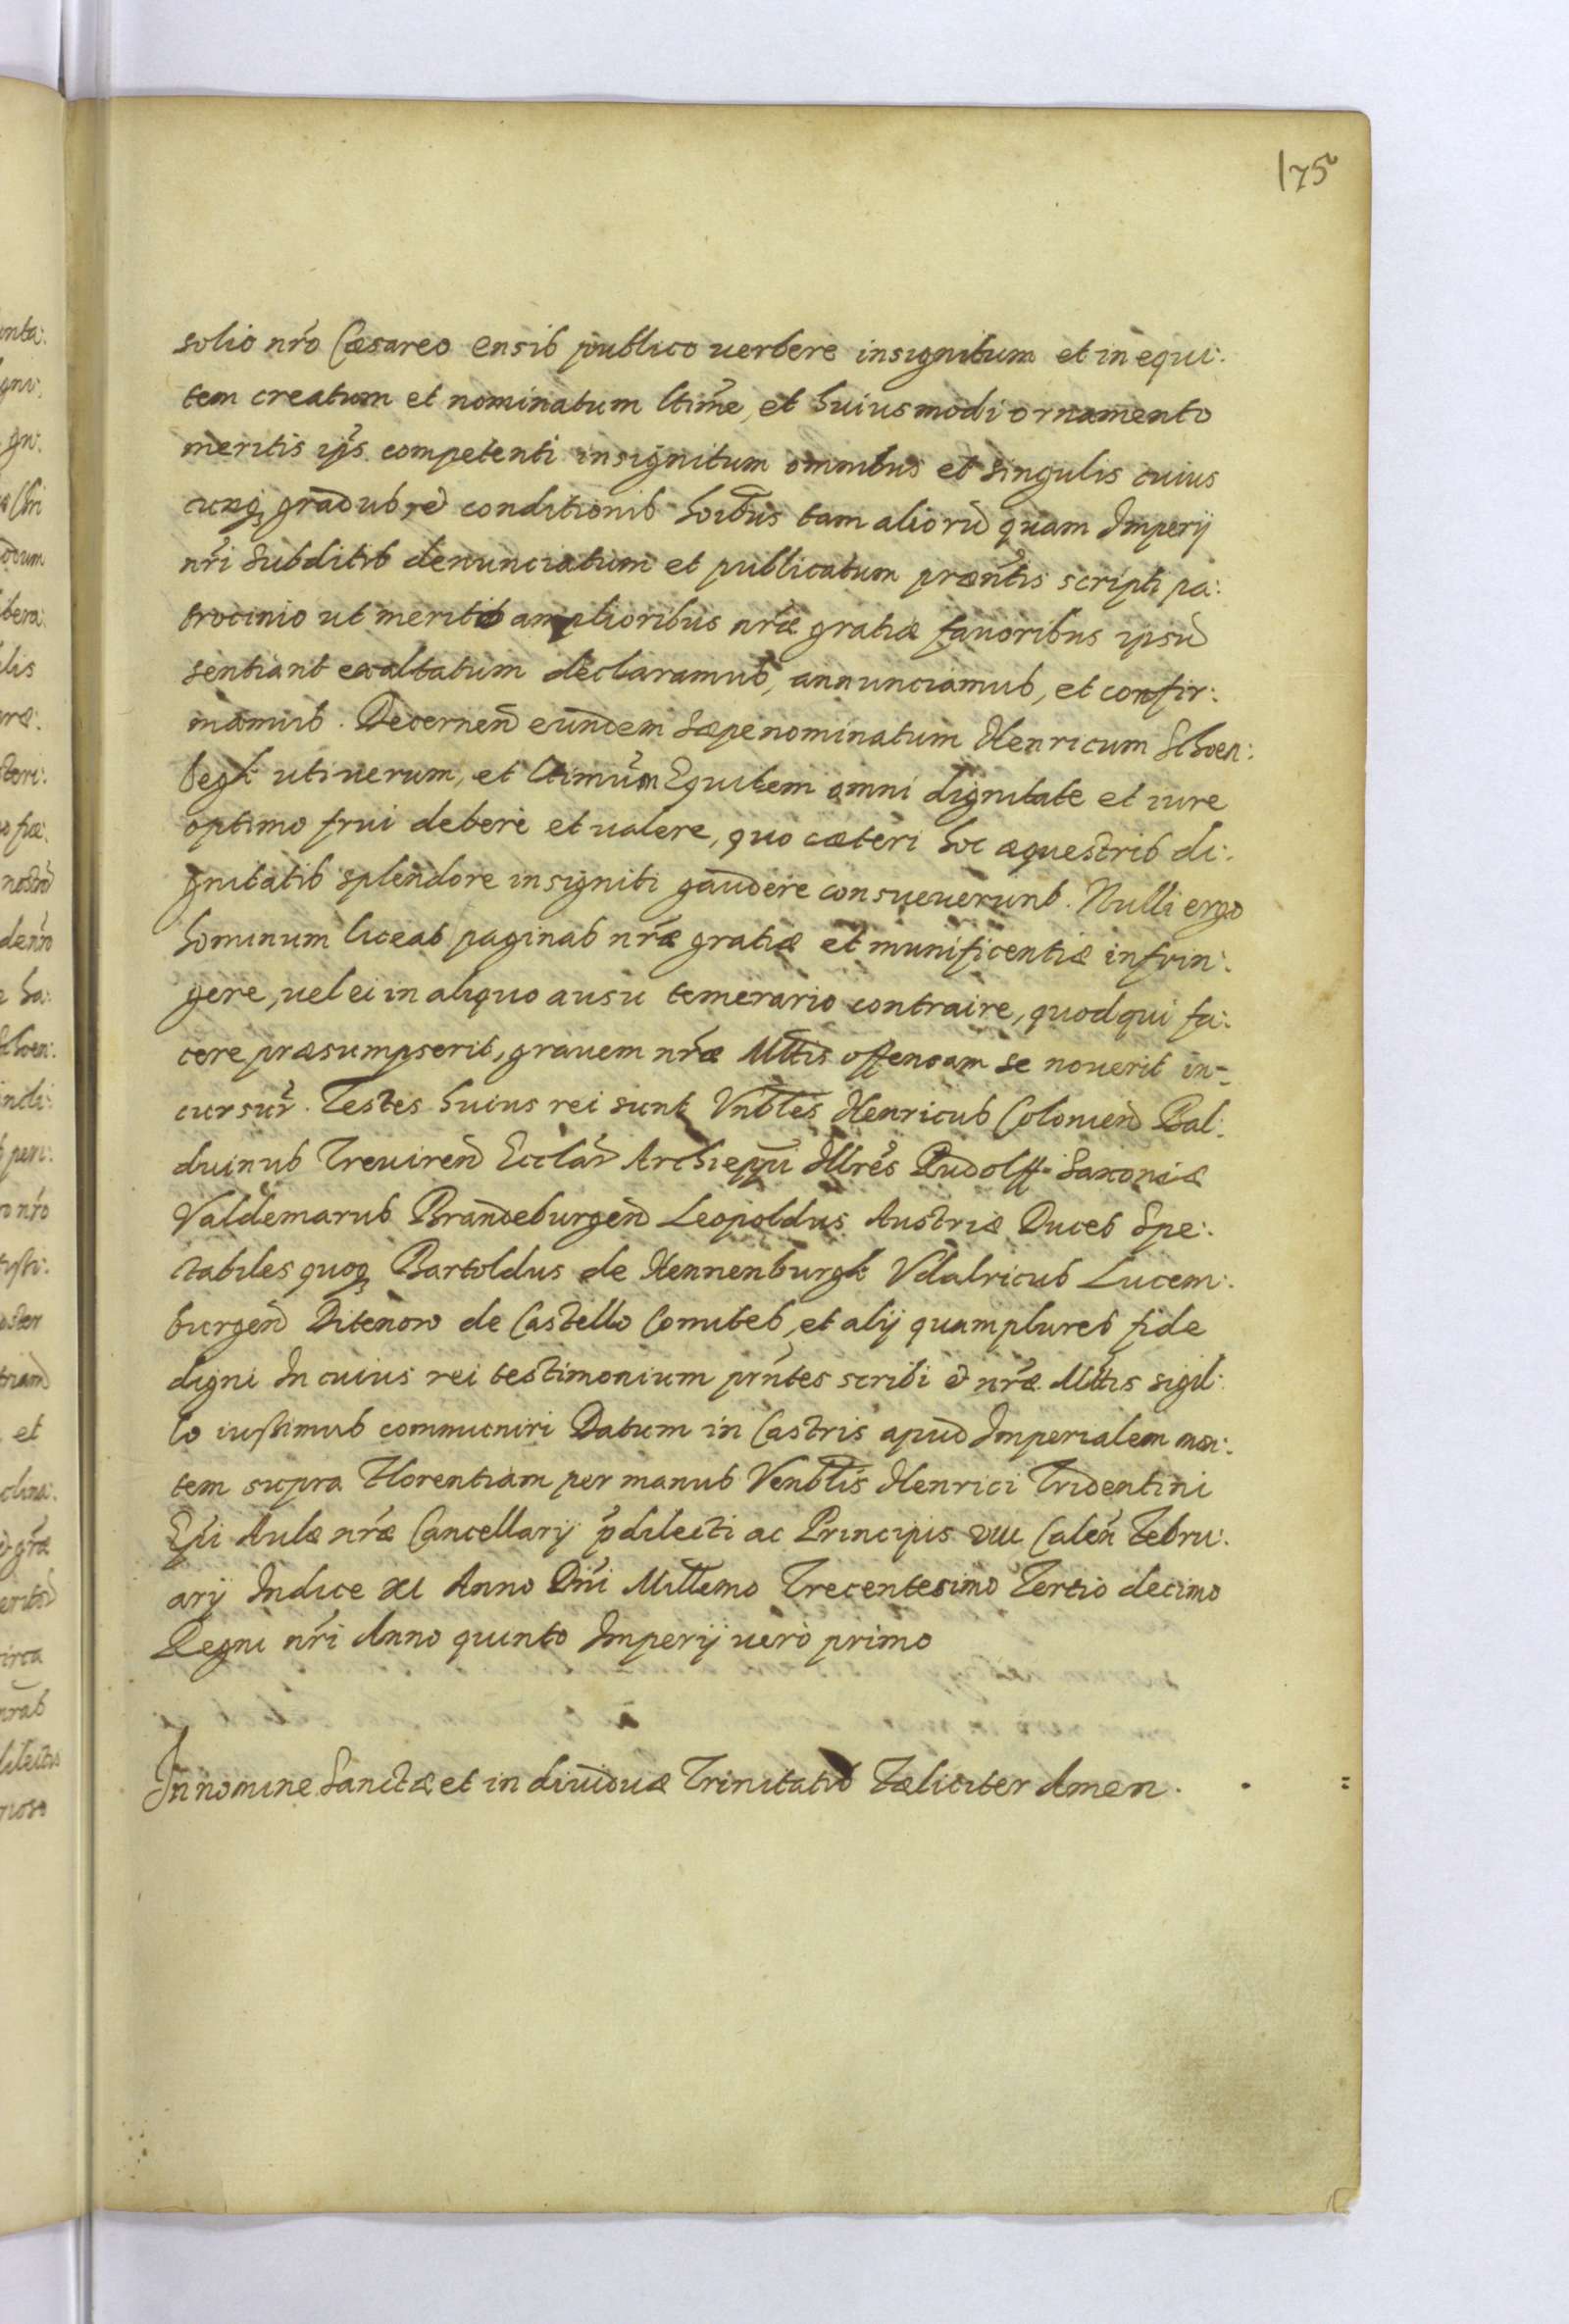 175
solio nr̃o Cæsareo ensis publico uerbere insignitum et in equi:
tem creatum et nominatum ltim̃e, et huiusmodi ornamento
meritis ip̃s competenti insignitum omnibus et singulis cuius
cunq; gradus, et conditionis ho͠ibus tam alioru͂ quam Imperij
nr̃i subditis denunciatum et publicatum præn̄tis scripti pa:
trocinio ut meritis amplioribus nr̃æ gratiæ fauoribus ipsu͂
sentiant exaltatum declaramus, annunciamus, et confir:
mamus. Decernen̄ eundem sæpenominatum Henricum Schoen:
begk uti uerum, et ltimũm Equitem omni dignitate et iure
optimo frui debere et ualere, quo cæteri hoc æquestris di:
gnitatis splendore insigniti gaudere consueuerunt. Nulli ergo
hominum liceat paginas nr̃æ gratiæ et munificentiæ infrin:
gere, uel ei in aliquo ausu temerario contraire, quod qui fa:
cere præsumpserit, grauem nr̃æ Mttis offensam se nouerit in:
cursur̃. Testes huius rei sunt Vnbles Henricus Colonien̄ Bal:
duinus Treuiren̄ Ecclar̃ Archiepp̃i Illres Rudolff Saxoniæ
Valdemarus Brandeburgen̄ Leopoldus Austriæ Duces Spe:
ctabiles quoq; Bartoldus de Hennenburgk Vdalricus Lucem:
burgen̄ Ditenow de Castello Comites, et alij quamplures fide
digni In cuius rei testimonium prñtes scribi et nr̃æ Mttis sigil:
lo iussimus communiri Datum in Castris apud Imperialem mon:
tem supra Florentiam per manus Venblis Henrici Tridentini
Ep̃i Aulæ nr̃æ Cancellarij p̃dilecti ac Principis VIII Calen̄ Febru:
arij Indice XI Anno Dñi Millemo Trecentesimo Tertio decimo
Regni nr̃i Anno quinto Imperij uero primo
In nomine Sanctæ et indiuiduæ Trinitatis Fæliciter Amen.